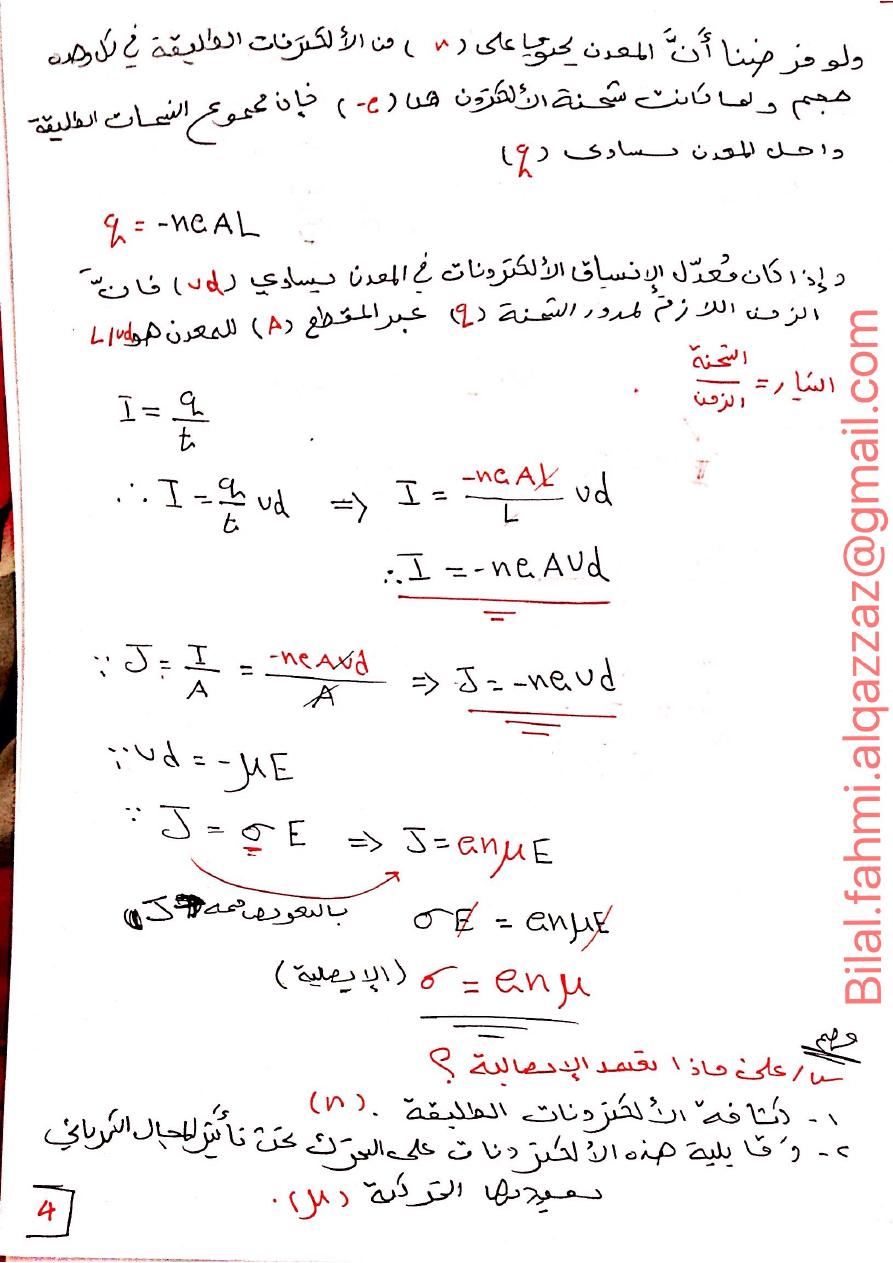 ولو فرضنا أنَّ المعدن يحتوي على (n) من الألكترونات الطليقة في كل وحدة
حجم ولما كانت شحنة الألكترون هنا (-e) فإن مجموع الشحنات الطليقة
داخل المعدن يساوى (q)
q = -neAL
وإذا كان مُعدّل الإنسياق الألكترونات في المعدن يساوي (vd) فانَّ
الزمن اللازم لمرور الشحنة (q) عبر المقطع (A) للمعدن هو L/vd
التيار = الشحنة / الزمن
I = q/t
∴ I = q/t vd ⇒ I = -neAL/L vd
∴ I = -neAvd
∵ J = I/A = -neAvd/A ⇒ J = -nevd
∵ vd = -μE
∵ J = σE ⇒ J = enμE
بالتعويض J
σE = enμE
σ = enμ (الإيصلية)
مهم
س/ على ماذا تعتمد الإيصالية ؟
١- كثافة الألكترونات الطليقة (n).
٢- وقابلية هذه الألكترونات على التحرك تحت تأثير المجال الكهربائي
(μ).
4
Bilal.fahmi.alqazzaz@gmail.com